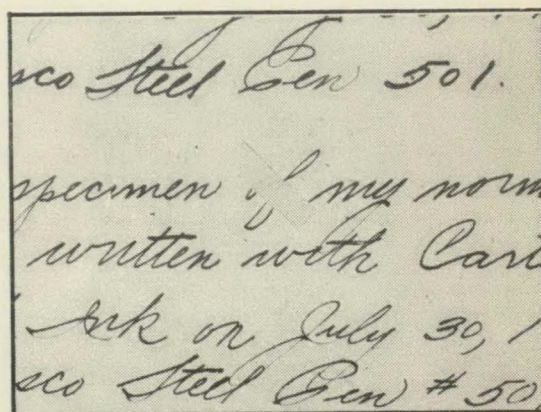 sco Steel Pen 501.
specimen of my norm
written with Cart
Ink on July 30, 1
sco Steel Pen # 50